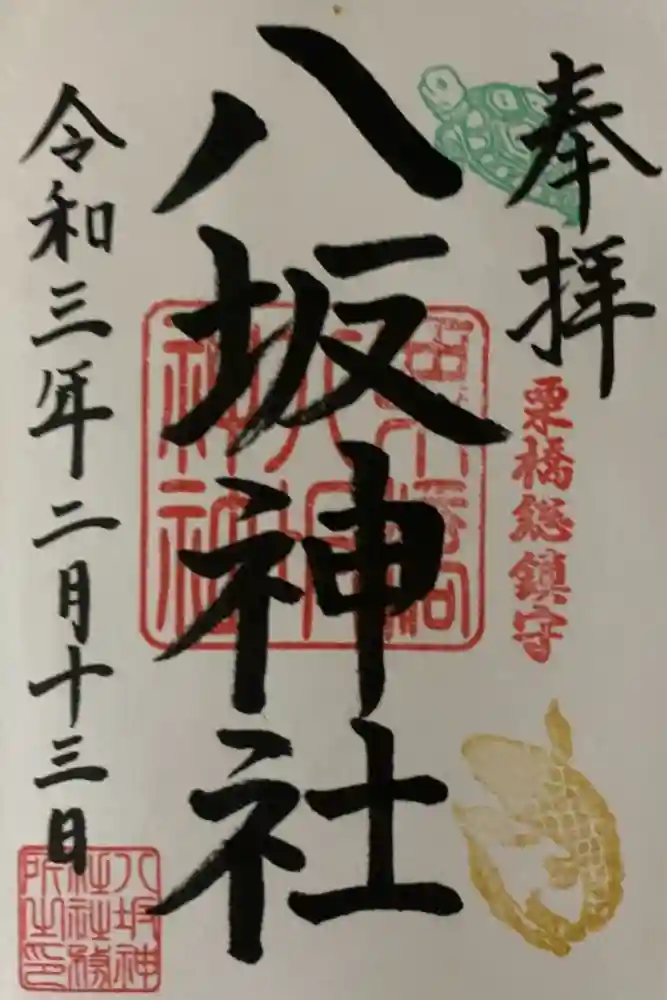 奉拝
栗橋総鎮守
八坂神社
栗橋
八坂
神社
令和三年二月十三日
八坂神
社社務
所之印